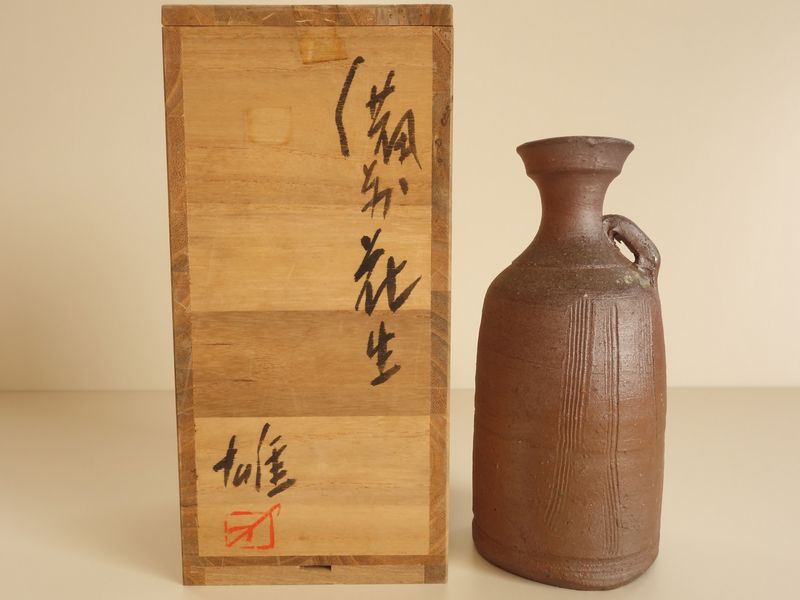 備前花生
雄